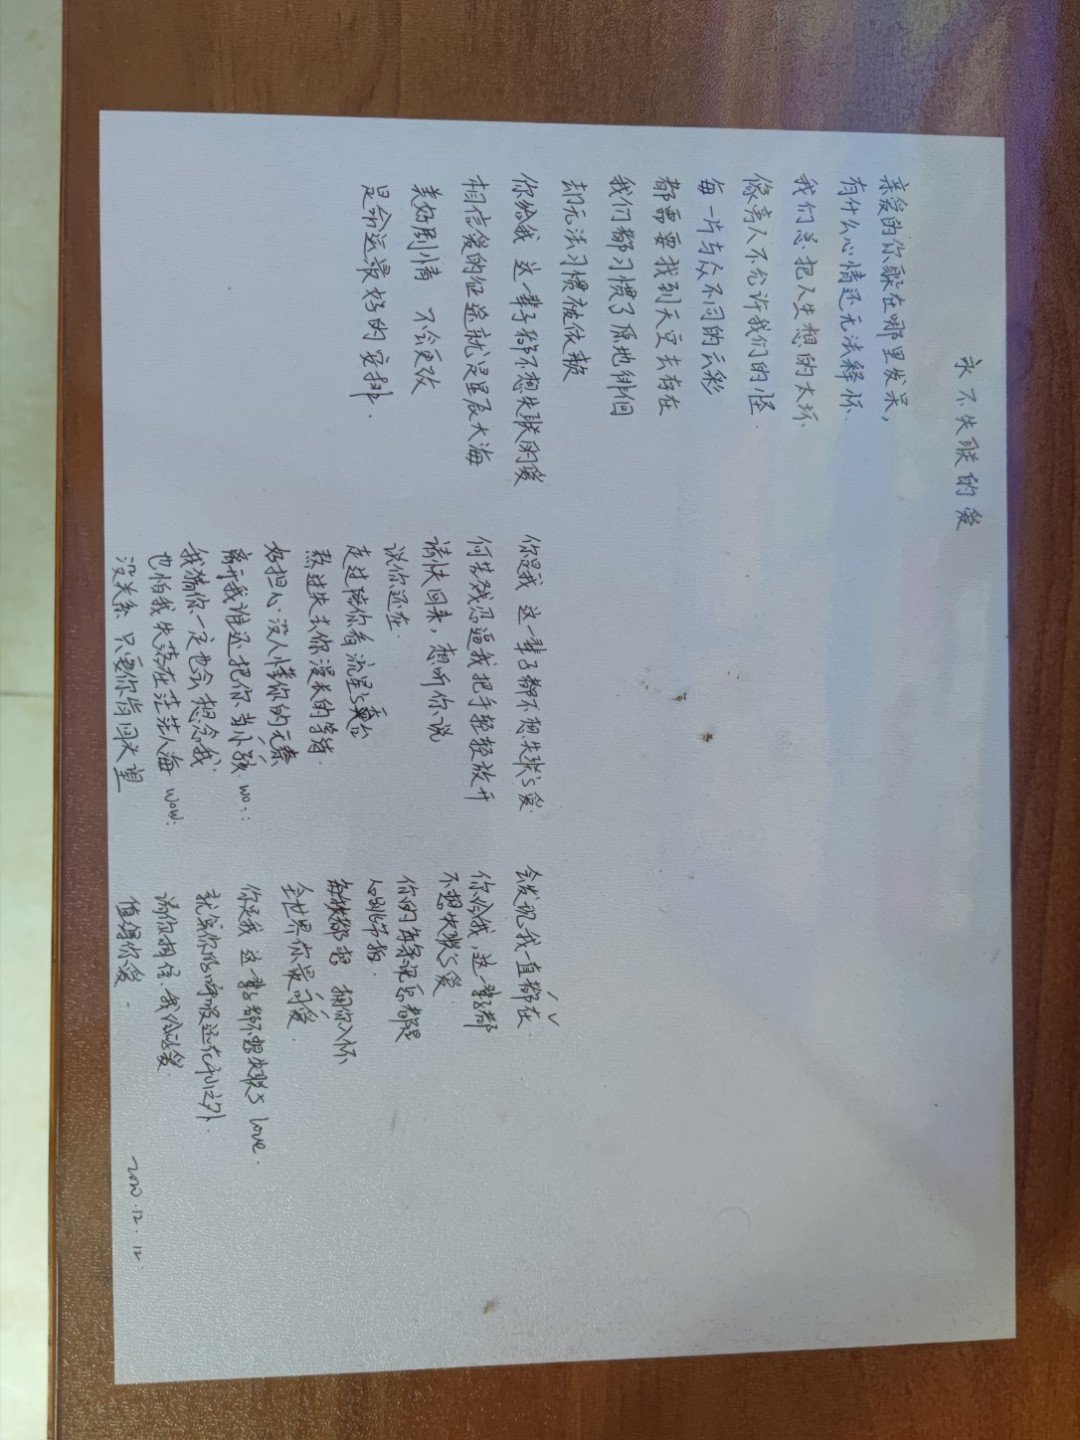 永不失联的爱
亲爱的你躲在哪里发呆,
有什么心情还无法释怀.
我们总把人生想的太坏
像旁人不允许我们的怪.
每一片与众不同的云彩
都需要找到天空去存在
我们都习惯了原地徘徊
却无法习惯被依赖
你给我 这一辈子都不想失联的爱
相信爱的征途就是星辰大海
美好剧情 不会更改
是命运最好的安排.
你是我 这一辈子都不想失联的爱.
何苦残忍逼我把手轻轻放开
请快回来,想听你说
说你还在.
走过陪你看流星的天台
熬过失去你漫长的等待.
好担心没人懂你的无奈
离开我谁还把你当小孩 wo..
我猜你一定也会想念我.
也怕我失落在茫茫人海 wow.
没关系 只要你肯回头望
会发现我一直都在.
你给我,这一辈子都
不想失联的爱.
你的每条讯息都是
心跳节拍.
每秒都想 拥你入怀
全世界你最可爱.
你是我 这一辈子都不想失联的 love.
就算你的呼吸远在千山之外.
请你相信我给的爱.
值得你爱.
2020.12.12.